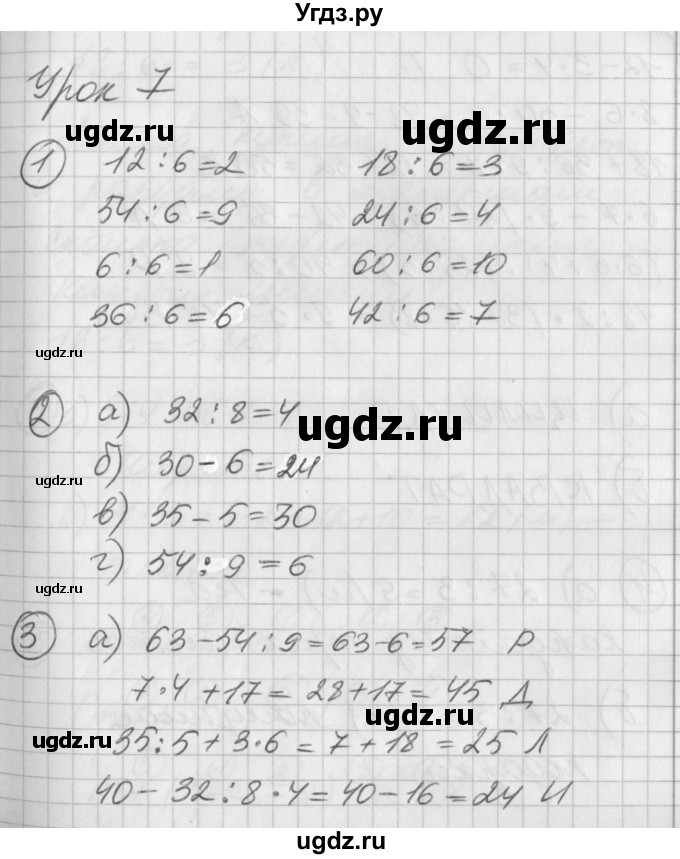 Угдз.ру
Урок 7
ugdz.ru ugdz.ru
1 12 : 6 = 2 18 : 6 = 3
54 : 6 = 9 24 : 6 = 4
6 : 6 = 1 60 : 6 = 10
36 : 6 = 6 42 : 6 = 7
ugdz.ru
2 а) 32 : 8 = 4
ugdz.ru
б) 30 - 6 = 24
ugdz.ru
в) 35 - 5 = 30
г) 54 : 9 = 6
ugdz.ru
3 а) 63 - 54 : 9 = 63 - 6 = 57 Р
7 · 4 + 17 = 28 + 17 = 45 Д
ugdz.ru
ugdz.ru 35 : 5 + 3 · 6 = 7 + 18 = 25 Л
40 - 32 : 8 · 4 = 40 - 16 = 24 И
ugdz.ru